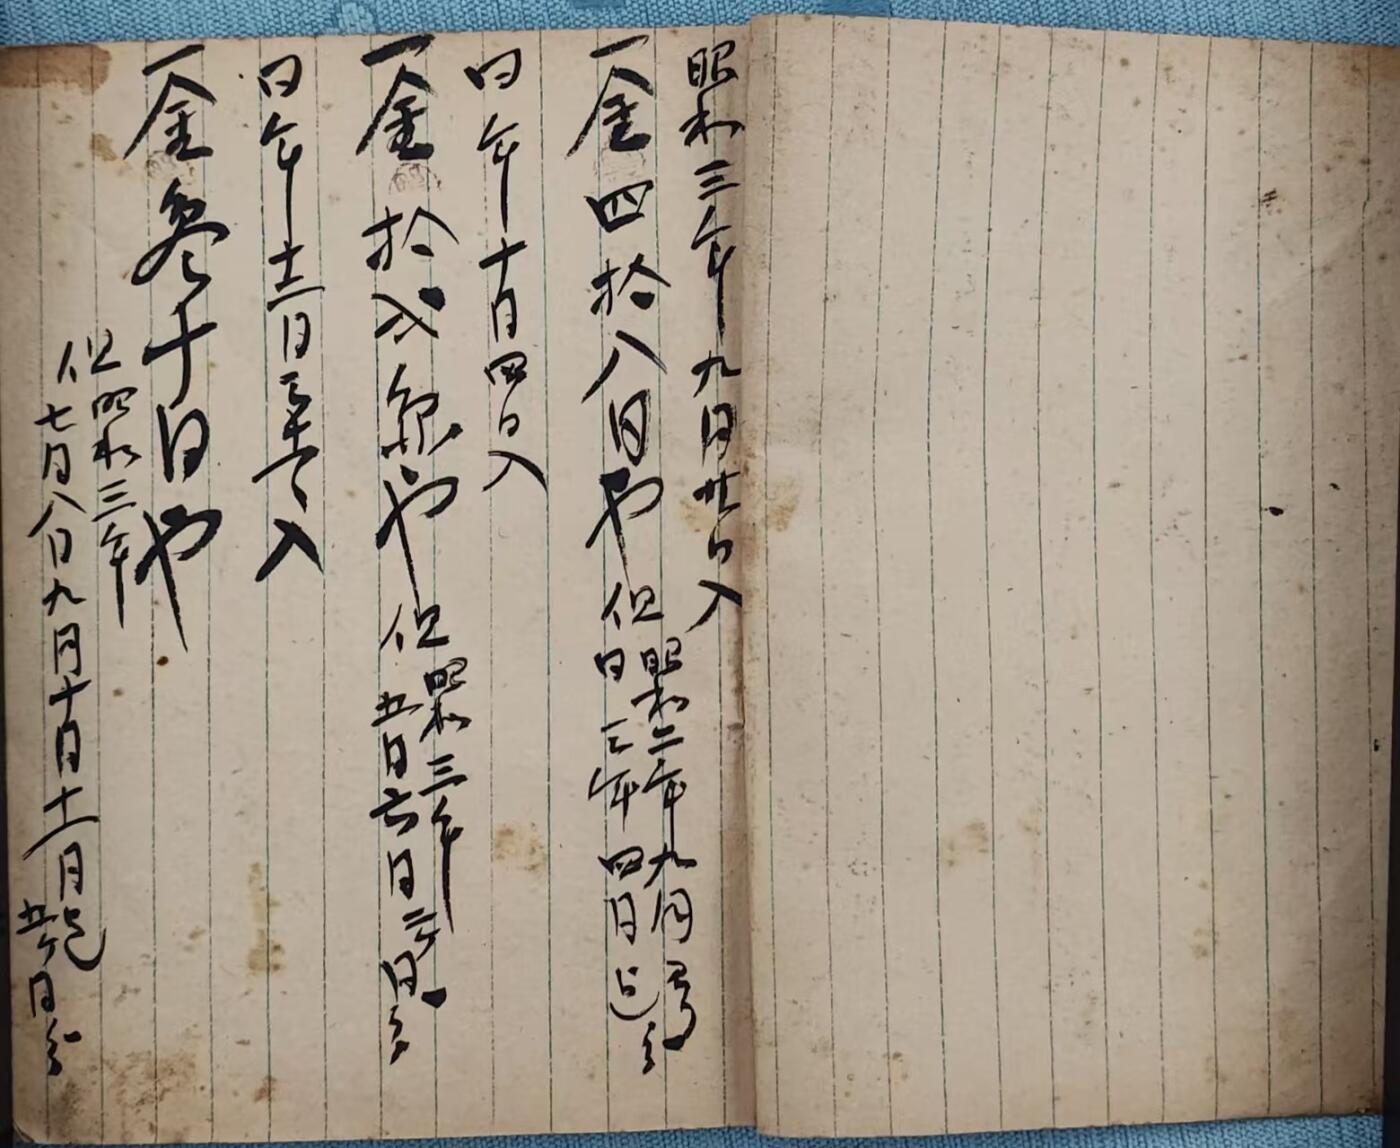 昭和三年九月廿日入
一金四拾八円也
但昭和二年九月ヨリ
同三年四月迄分
同年十月四日入
一金拾弐円也
但昭和三年
五月六月二ヶ月分
同年十二月三十一日入
一金参十円也
但昭和三年
七月八月九月十月十一月迄
五ヶ月分